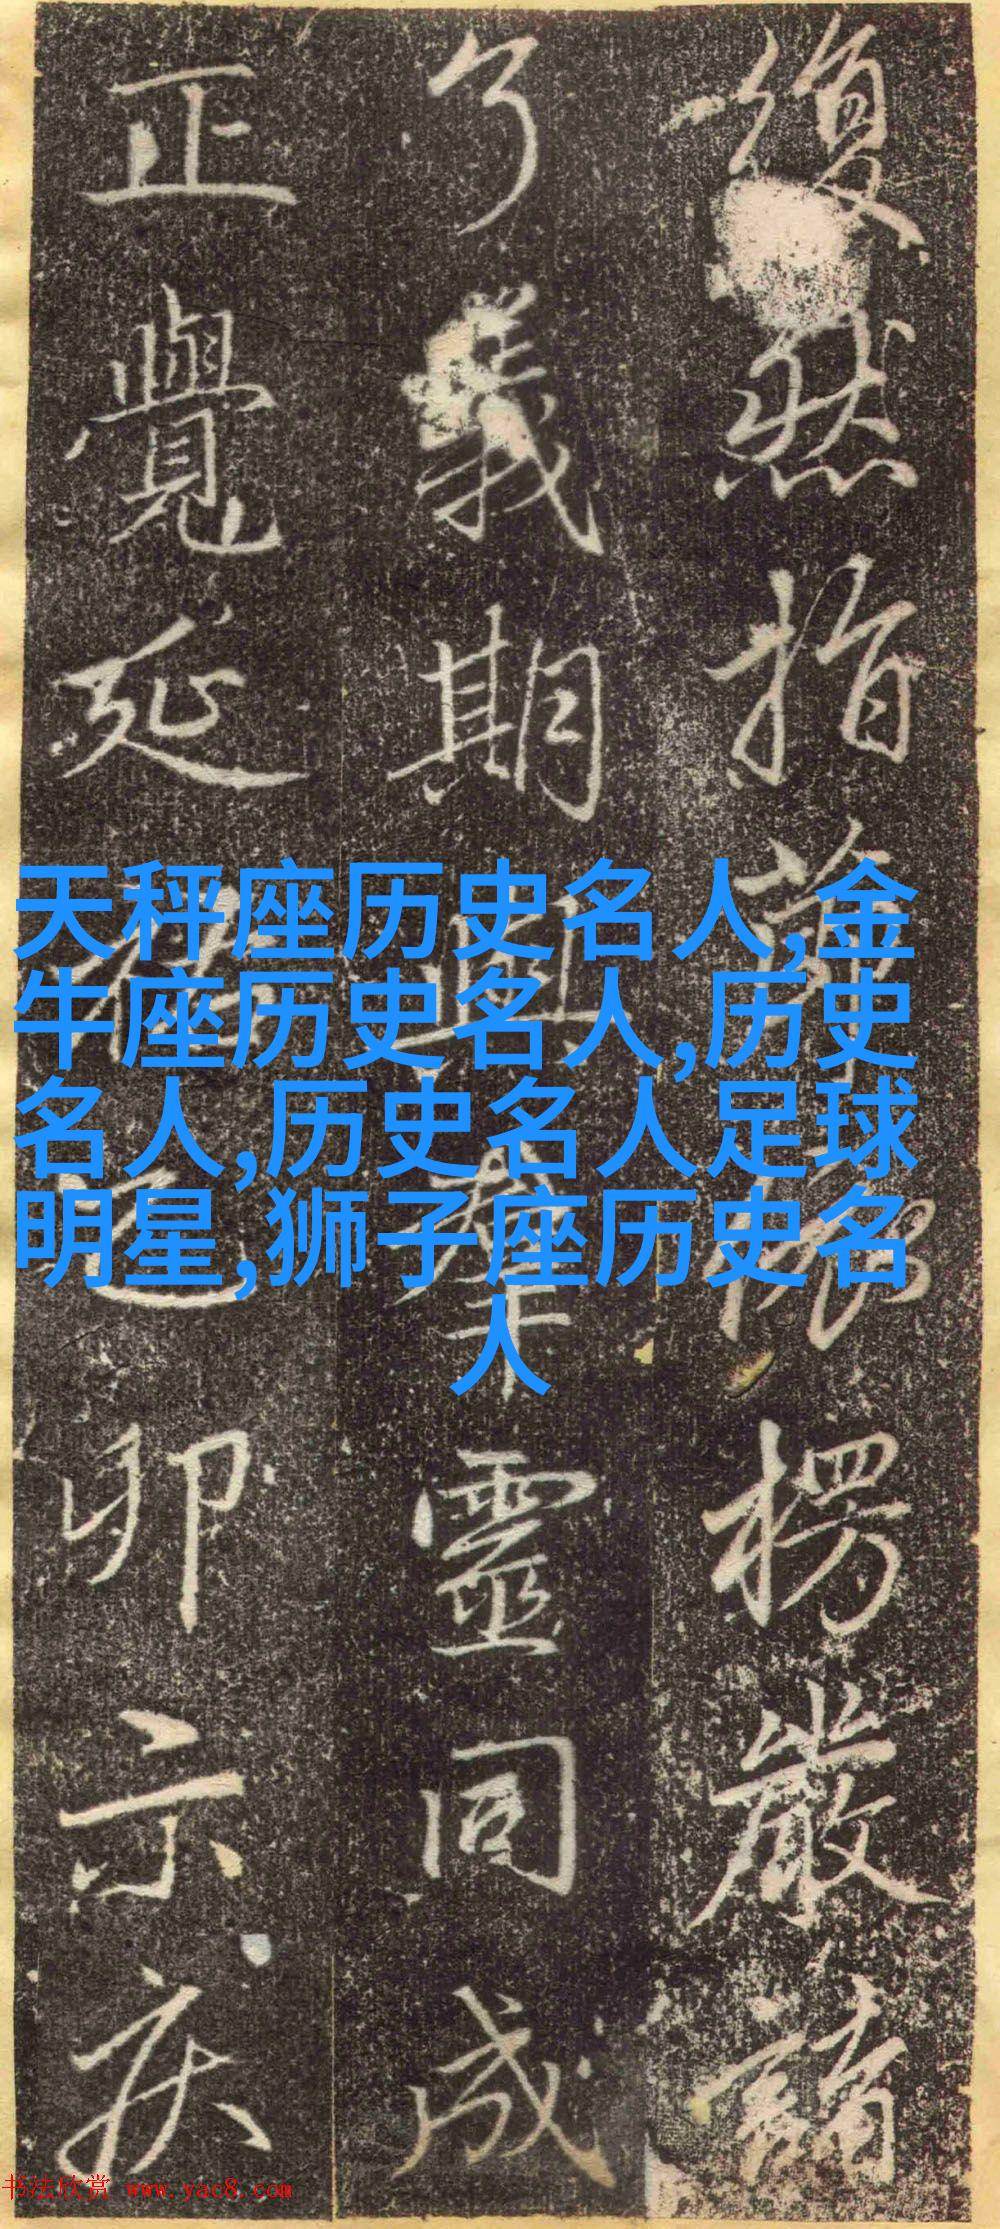 復然指楞嚴
了義期與羣靈同成
正覺延卯示疾
天秤座历史名人,金
牛座历史名人,历史
名人,历史名人足球
明星,狮子座历史名
人
书法欣赏 www.yac8.com